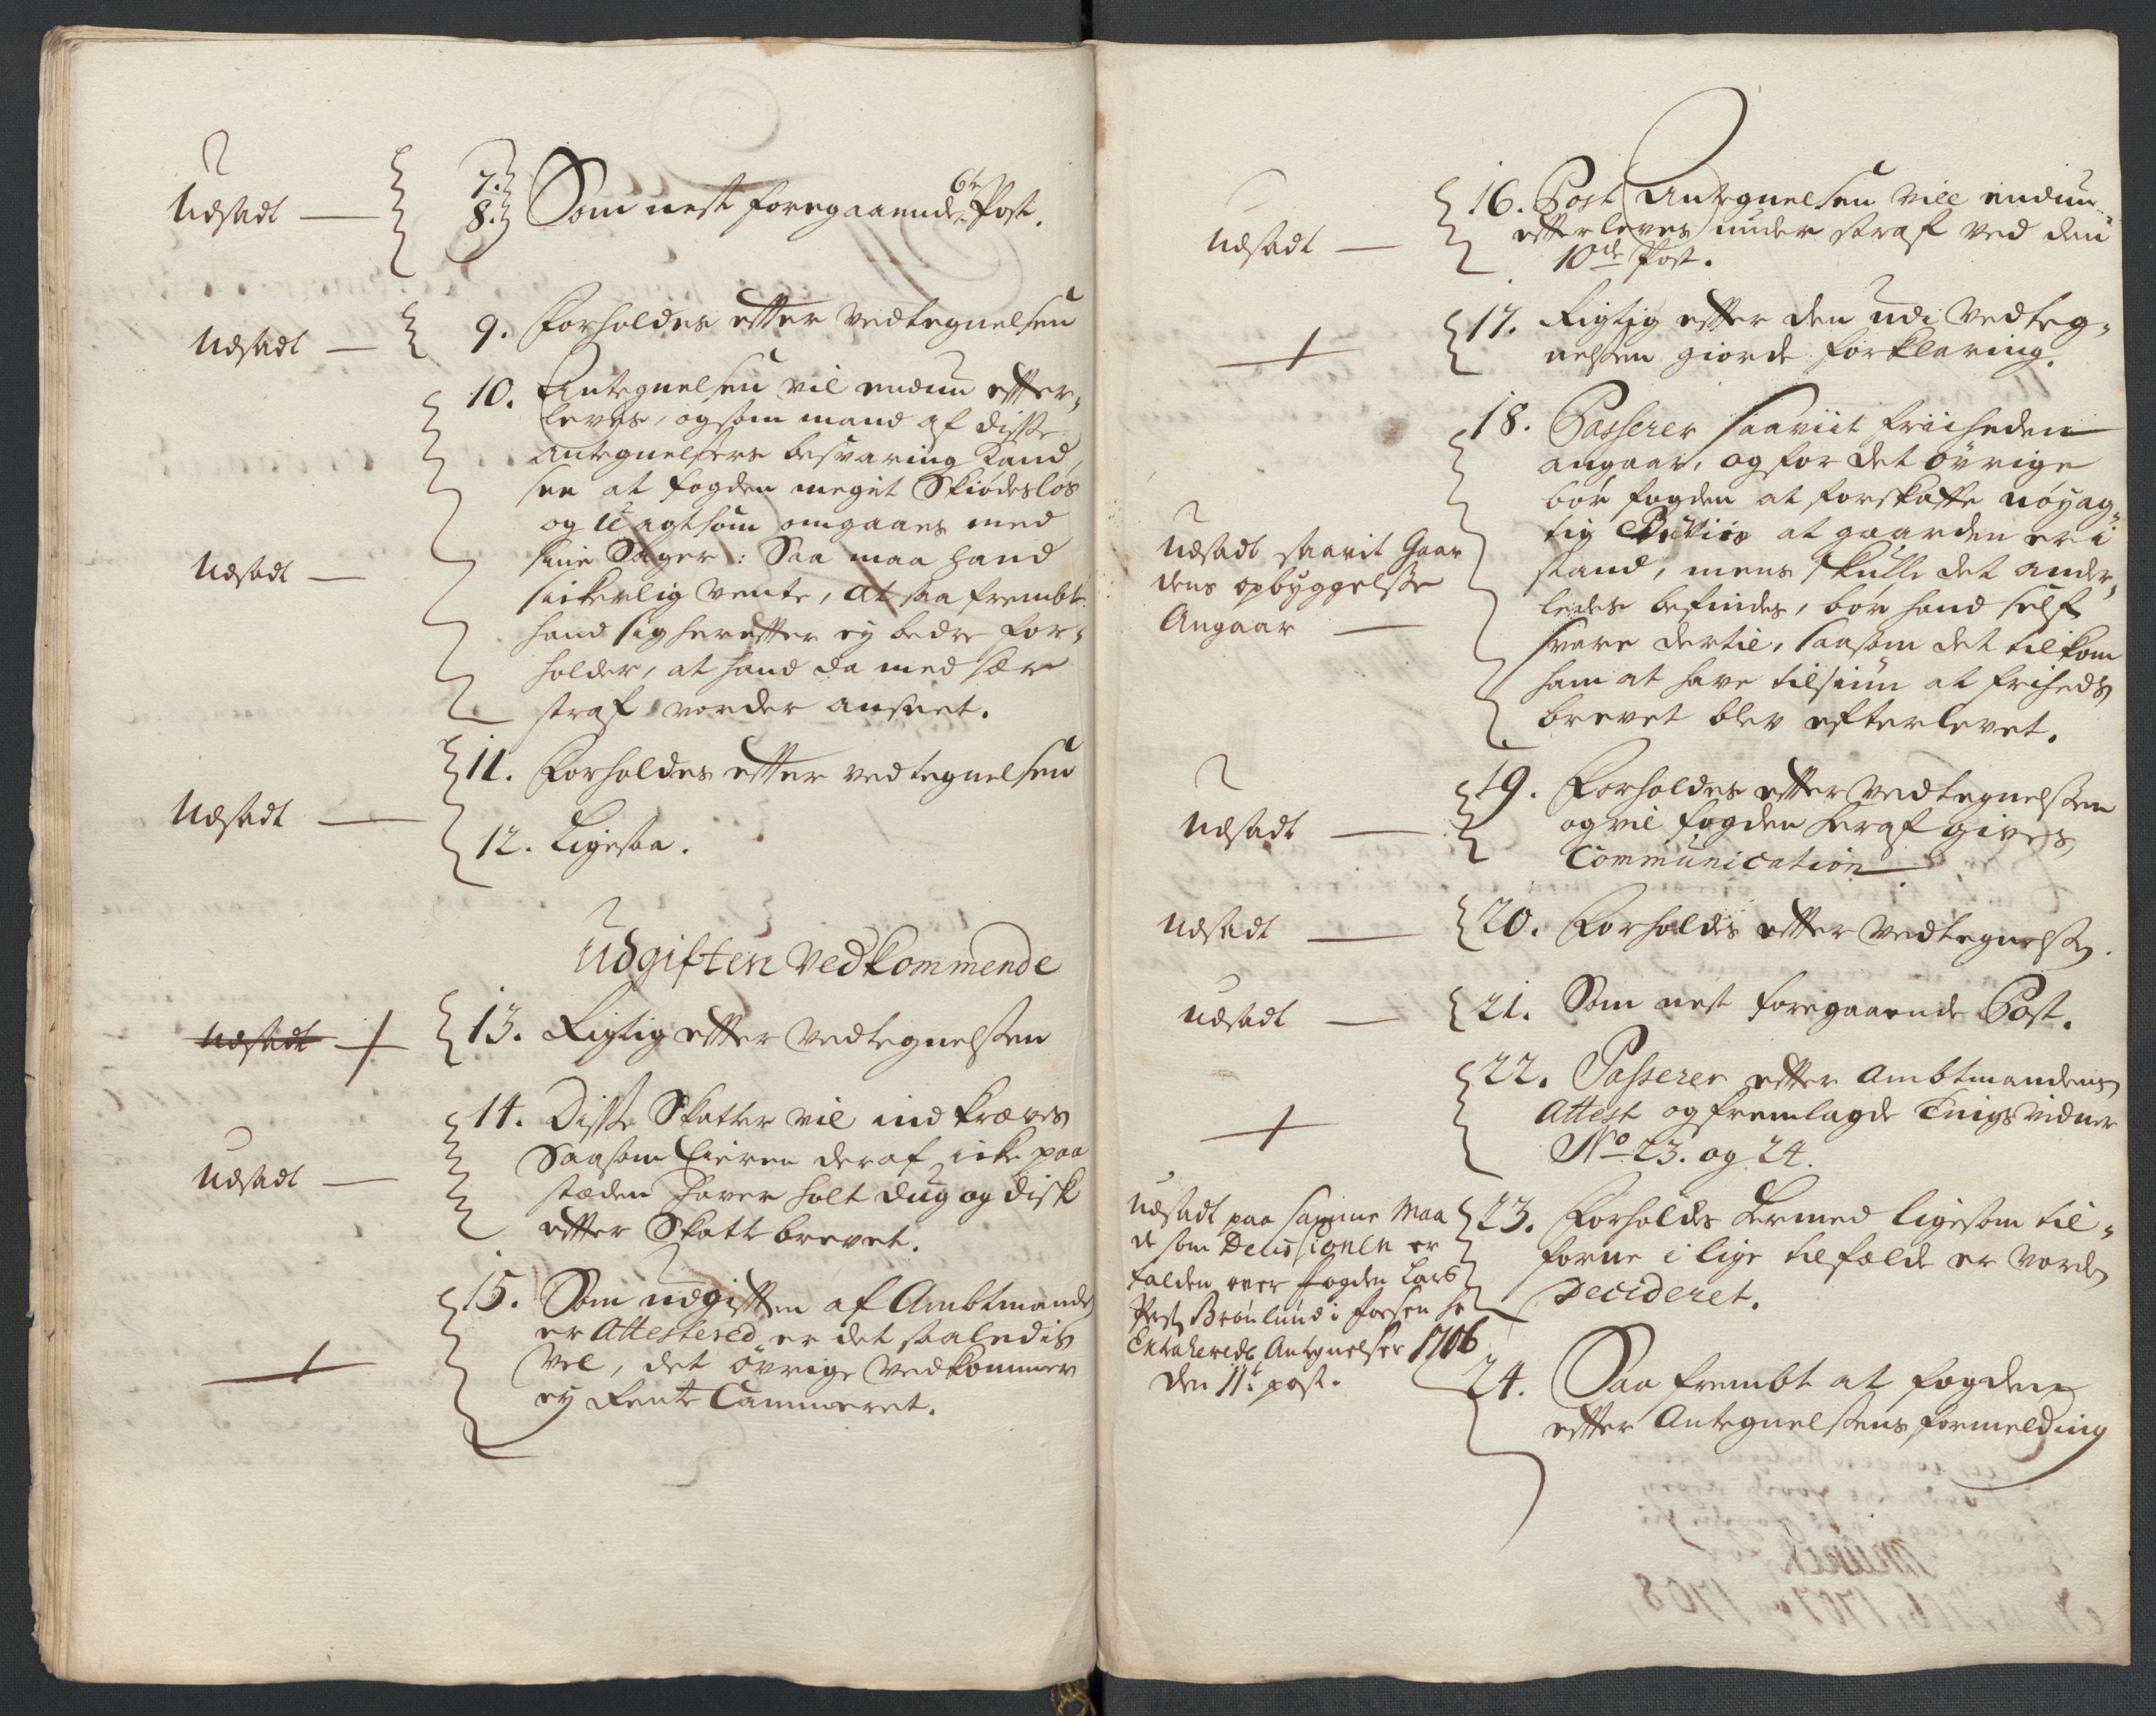 Udsadt —
7.
8. Som nest foregaaende 6te Post.
Udsadt —
9. Forholdes effter Vedtegnelsen
Udsadt —
10. Antegnelsen vil endnu effter-
leves, og som mand af disse
Antegnelsers besvaring kand
see at fogden meget Skiødesløs
og Uagtsom omgaaes med
sine Sager: Saa maa hand
sickerlig vente, at saa frembt
hand sig hereffter ey bedre for-
holder, at hand da med
straf vorder anseet.
Udsadt —
11. Forholdes effter vedtegnelsen
12. Ligesaa.
Udgiften Vedkommende
Udsadt
13. Rigtig effter Vedtegnelsen
Udsadt —
14. Disse Skatter vil indkræves
Saasom Eieren deraf icke paa
stæden haver holt dug og disk
effter Skatt brevet.
15. Som udgifften af Ambtmanden
er Attestered er det saaledis
vel, det øvrige vedkommer
ey Rente Cammeret.
Udsadt —
16. Post Antegnelsen vill endnu
effterleves under straf ved den
10de Post.
17. Rigtig effter den udi Vedteg-
nelsen giorde forklaring.
Udsadt saavit Gaar
dens opbyggelse
Angaar —
18. Passerer saaviit friiheden
angaar, og for det øvrige
bør fogden at forskaffe nøyag-
tig Beviis at gaarden er i
stand, mens skulle det ander-
ledes befindes, bør hand self
svare dertil, saasom det tilkom
ham at have tilsiun at friheds
brevet blev efterlevet.
Udsadt —
19. Forholdes effter Vedtegnelsen
og vil fogden heraf gives
Communication
Udsadt —
20. Forholdis effter Vedtegnelsen.
Udsadt —
21. Som nest foregaaende Post.
22. Passerer effter Ambtmandens
Attest og fremlagde Tings vidner
No 23. og 24.
Udsadt paa samme Maa
de som Decissionen er
falden over fogden Lars
Brønlund i Fosen
Extraherede Antegnelser 1706
den 11te post.
23. Forholdis hermed ligesom til-
forne i lige tilfælde er vorden
Decideret.
24. Saa frembt at fogden
effter Antegnelsens formelding